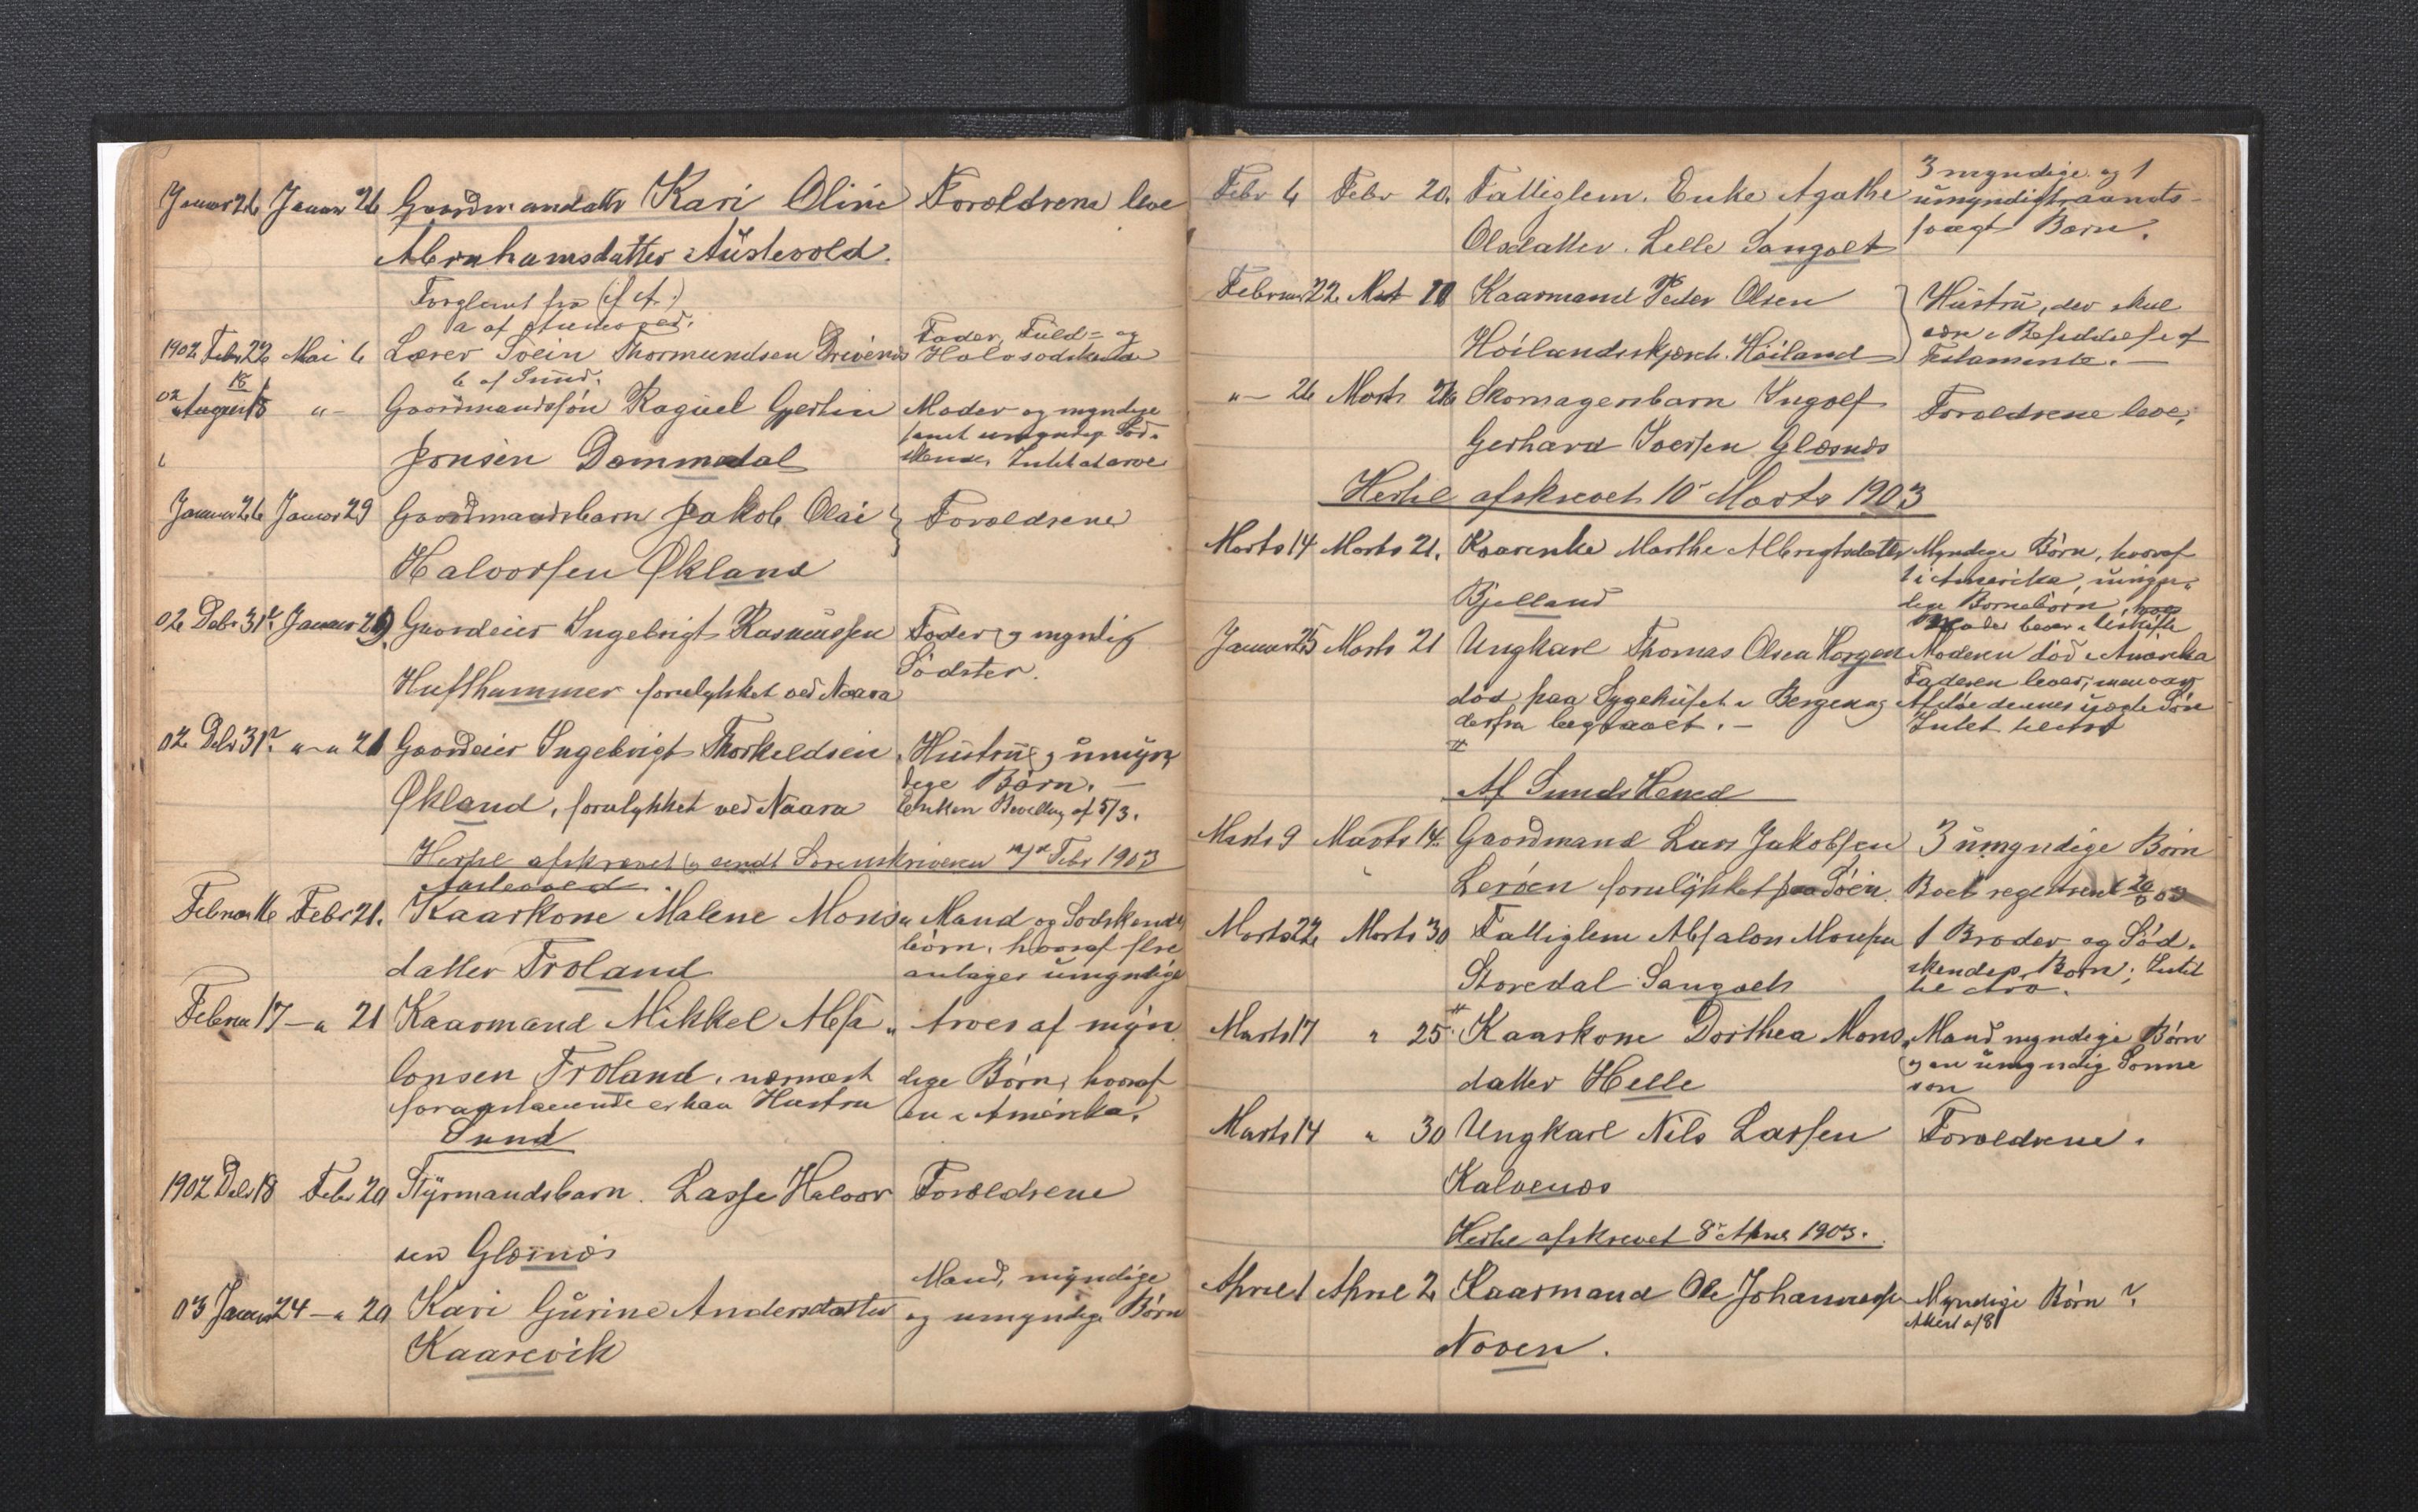 Januar 26 Januar 26 Gaardmandsdatter Kari Oline Forældrene leve
Abrahamsdatter Austevold.
Forglemt fra (if et.)
a af Austevold.
1902 Febr 22 Mai 6 Lærer Svein Thormundsen Drivenes Fader, Fuld- og
Halvsødskende
b af Sund.
02 August 18 " Gaardmandssøn Raguel Gjertin Moder og myndige
samt umyndige Sød-
Jonsen Dammedal skende. Intet at arve
Januar 26 Januar 29 Gaardmandsbarn Jakob Olai Forældrene
Halvorsen Økland
02 Debr 31te Januar 29 Gaardeier Ingebrigt Rasmussen Fader og myndig
Søster.
Hufthammer forulykket ved Naara
02 Debr 31te " 21 Gaardeier Ingebrigt Thorkeldsen Hustru og umyn
dige Børn.
Økland, forulykket ved Naara Enken Bevilling af 5/3.
Hertil afskrevet og sendt Sorenskriveren Febr 1903
Austevold
Februar 16 Febr 21. Kaarkone Malene Mons- Mand og Sødskende
børn, hvoraf flere
datter Froland antages umyndige
Februar 17 - " 21 Kaarmand Mikkel Absa- Arves af myn
lonsen Froland, nærmest dige Børn, hvoraf
foranstaaende er hans Hustru en i Amerika.
Sund
1902 Debr 18 Febr 20 Styrmandsbarn. Lasse Halvor Forældrene
sen Glæsnæs
Mand, myndige
03 Januar 24 - " 20 Kari Gurine Andersdatter og umyndige Børn
Kaarevik
3 myndige og 1
Febr 6 Febr 20. Fattiglem. Enke Agathe umyndigt aands-
svagt Barn.
Olsdatter. Lille Sangolt
Februar 22 Mrt 10 Kaarmand Peder Olsen Hustru, der skal
være i Besiddelse af
Høilandsskjær. Høiland Testamente.
" 26 Marts 26 Skomagerbarn Ingolf Forældrene leve,
Gerhard Iversen Glæsnæs
Hertil afskrevet 10de Marts 1903
Marts 14 Marts 21. Kaarenke Marthe Albrigtsdatter Myndige Børn, hvoraf
1 i Amerika, umyn-
Bjelland dige Børnebørn, hvis
Moder lever i Uskifte
Januar 25 Marts 21 Ungkarl Thomas Olsen Horgen Moderen død i Amerika
Faderen lever, men
død paa Sygehuset i Bergen og Afdøde dennes uægte Søn
derfra begravet. Intet
Af Sunds Herred
Marts 9 Marts 14. Gaardmand Lars Jakobsen 3 umyndige Børn
Lerøen forulykket paa Søen. Boet registreret
Marts 22 Marts 30 Fattiglem Absalon Monsen 1 Broder og Sød-
skendes Børn; Intet
Storedal Sangolt
Marts 17 " 25 Kaarkone Dorthea Mons- Mand myndige Børn
og en umyndig Sønne
datter Helle søn
Marts 14 " 30 Ungkarl Nils Larsen Forældrene.
Kalvenæs
Hertil afskrevet 8de April 1903.
April 1 April 2 Kaarmand Ole Johannessen Myndige Børn ?
Noven.